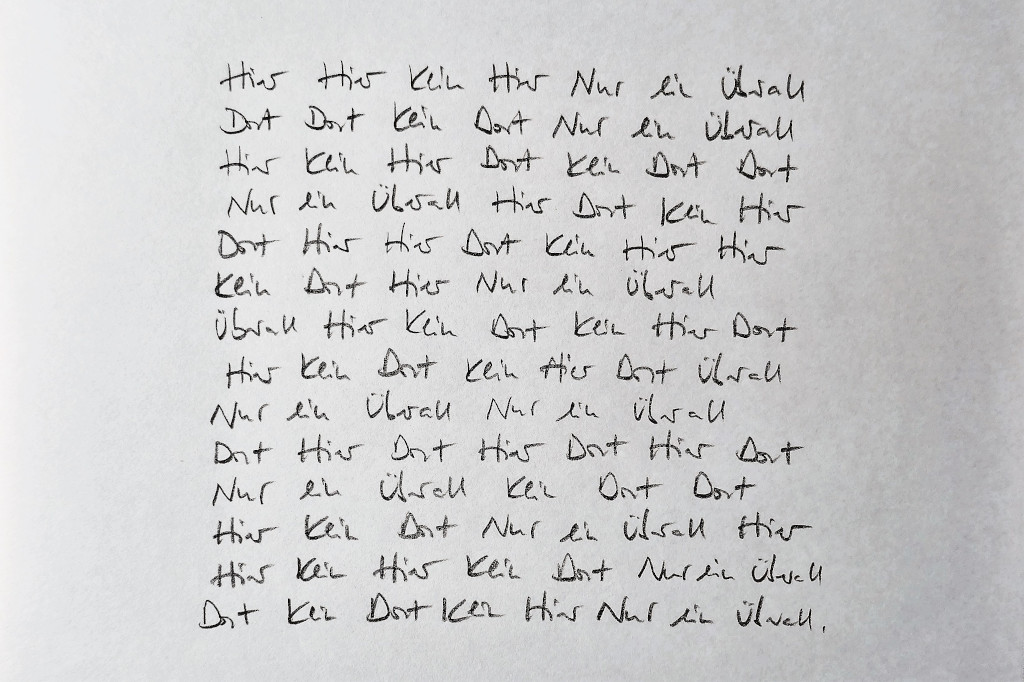 Hier Hier Kein Hier Nur ein Überall
Dort Dort Kein Dort Nur ein Überall
Hier Kein Hier Dort Kein Dort Dort
Nur ein Überall Hier Dort Kein Hier
Dort Hier Hier Dort Kein Hier Hier
Kein Dort Hier Nur ein Überall
Überall Hier Kein Dort Kein Hier Dort
Hier Kein Dort Kein Hier Dort Überall
Nur ein Überall Nur ein Überall
Dort Hier Dort Hier Dort Hier Dort
Nur ein Überall Kein Dort Dort
Hier Kein Dort Nur ein Überall Hier
Hier Kein Hier Kein Dort Nur ein Überall
Dort Kein Dort Kein Hier Nur ein Überall.